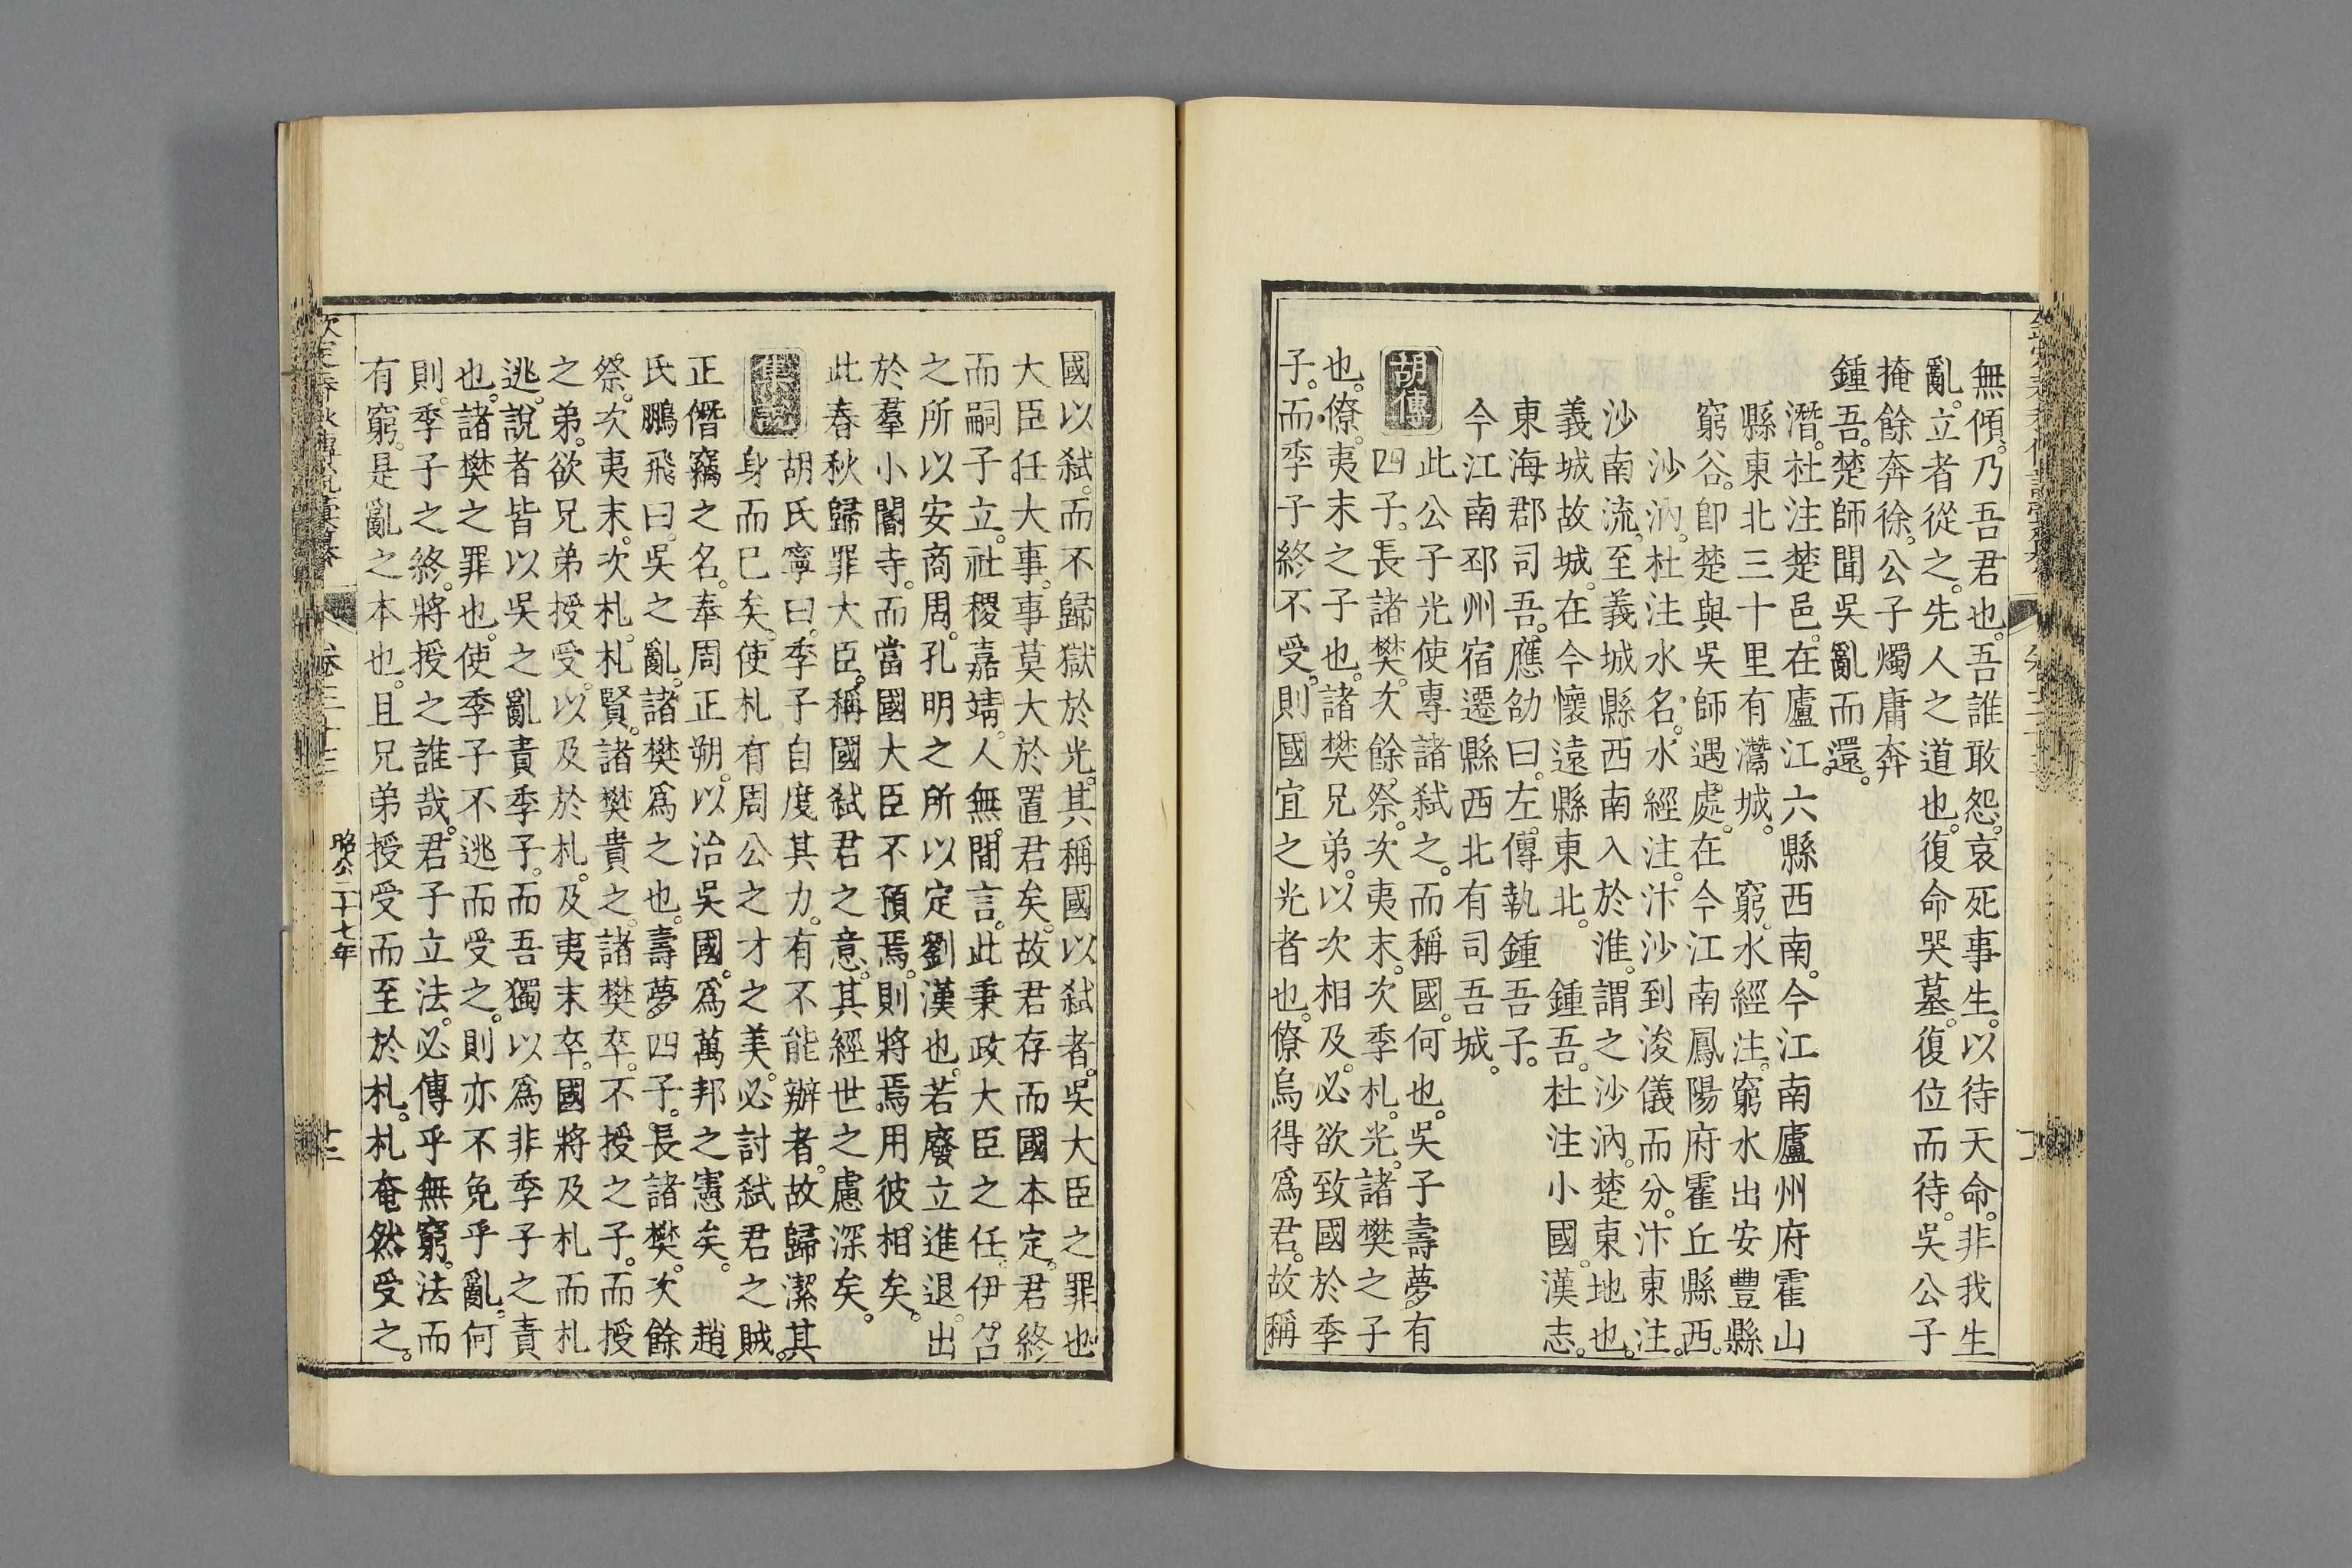 無傾。乃吾君也。吾誰敢怨。哀死事生。以待天命。非我生
亂。立者從之。先人之道也。復命哭墓。復位而待。吳公子
掩餘奔徐。公子燭庸奔
鍾吾。楚師聞吳亂而還。
潛。杜注楚邑。在廬江六縣西南。今江南廬州府霍山
縣東北三十里有灊城。 窮。水經注。窮水出安豐縣
窮谷。卽楚與吳師遇處。在今江南鳳陽府霍丘縣西。
沙汭。杜注水名。水經注。汴沙到浚儀而分。汴東注。
沙南流。至義城縣西南入於淮。謂之沙汭。楚東地也。
義城故城。在今懷遠縣東北。 鍾吾。杜注小國。漢志。
東海郡司吾。應劭曰。左傳執鍾吾子。
今江南邳州宿遷縣西北有司吾城。
胡傳
此公子光使專諸弑之。而稱國。何也。吳子壽夢有
四子。長諸樊。次餘祭。次夷末。次季札。光。諸樊之子
也。僚。夷末之子也。諸樊兄弟。以次相及。必欲致國於季
子。而季子終不受。則國宜之光者也。僚烏得爲君。故稱
國以弑。而不歸獄於光。其稱國以弑者。吳大臣之罪也
大臣任大事。事莫大於置君矣。故君存而國本定。君終
而嗣子立。社稷嘉靖。人無間言。此秉政大臣之任。伊召
之所以安商周。孔明之所以定劉漢也。若廢立進退。出
於羣小閽寺。而當國大臣不預焉。則將焉用彼相矣。
此春秋歸罪大臣。稱國弑君之意。其經世之慮深矣。
集說
胡氏寧曰。季子自度其力。有不能辦者。故歸潔其
身而已矣。使札有周公之才之美。必討弑君之賊。
正僭竊之名。奉周正朔。以治吳國。爲萬邦之憲矣。 趙
氏鵬飛曰。吳之亂。諸樊爲之也。壽夢四子。長諸樊。次餘
祭。次夷末。次札。札賢。諸樊貴之。諸樊卒。不授之子。而授
之弟。欲兄弟授受。以及於札。及夷末卒。國將及札而札
逃。說者皆以吳之亂責季子。而吾獨以爲非季子之責
也。諸樊之罪也。使季子不逃而受之。則亦不免乎亂。何
則。季子之終。將授之誰哉。君子立法。必傳乎無窮。法而
有窮。是亂之本也。且兄弟授受而至於札。札奄然受之。
昭公二十七年